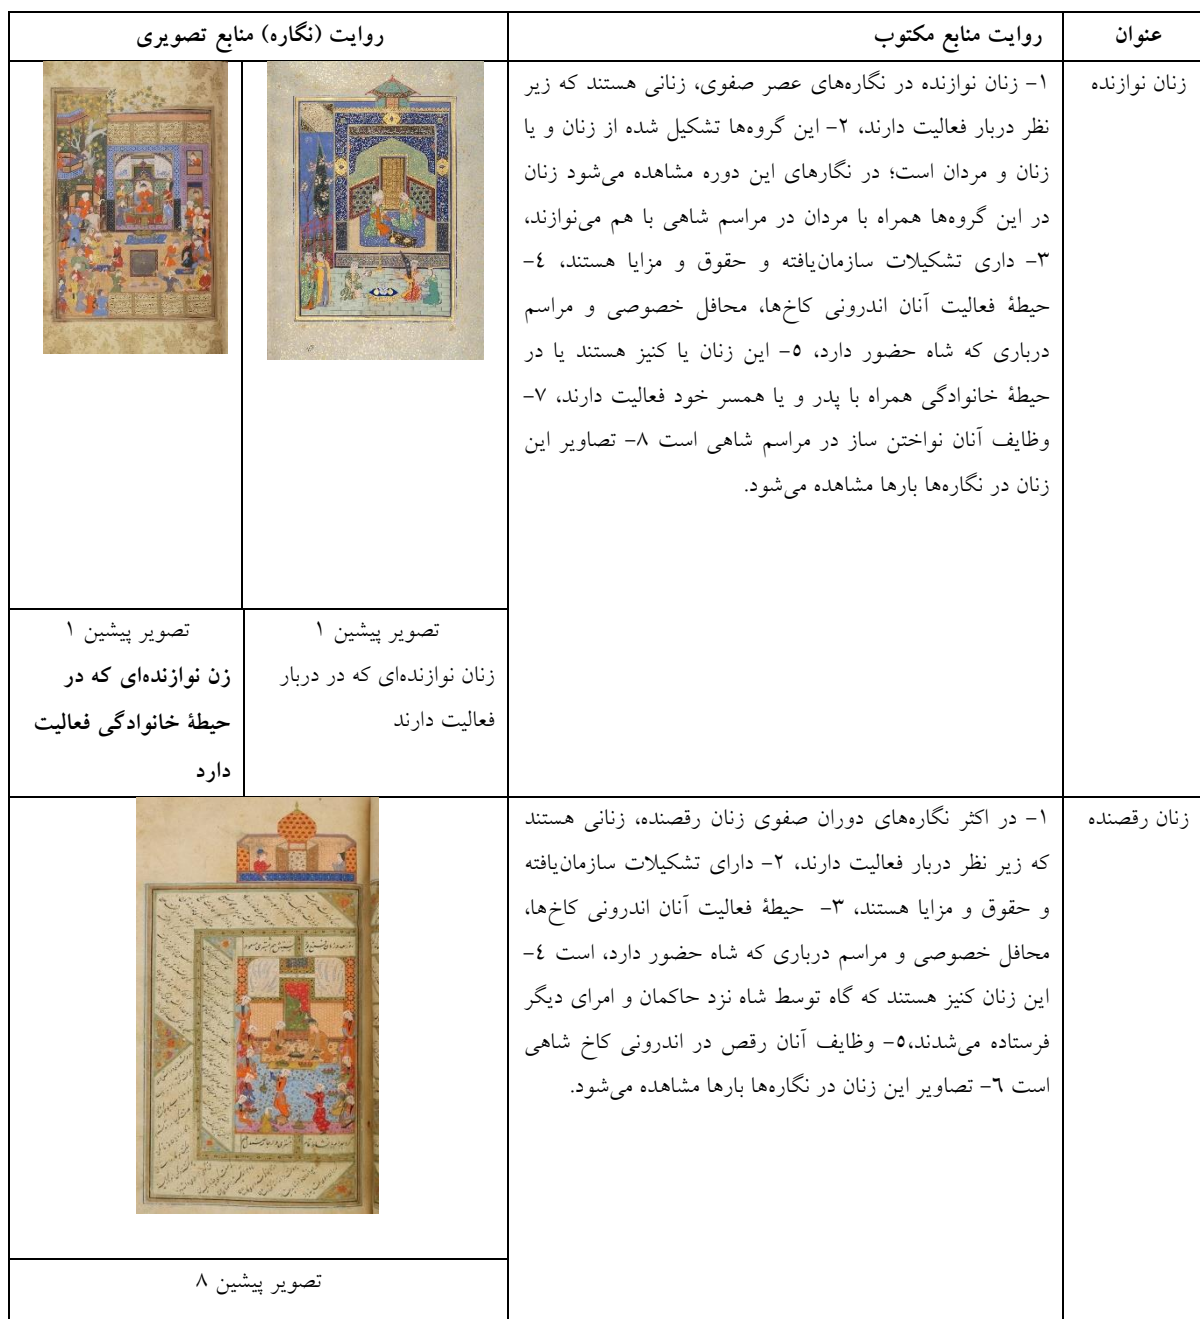 عنوان
روایت منابع مکتوب
روایت (نگاره) منابع تصویری
زنان نوازنده
۱- زنان نوازنده در نگاره‌های عصر صفوی، زنانی هستند که زیر
نظر دربار فعالیت دارند، ۲- این گروه‌ها تشکیل شده از زنان و یا
زنان و مردان است؛ در نگارهای این دوره مشاهده می‌شود زنان
در این گروه‌ها همراه با مردان در مراسم شاهی با هم می‌نوازند،
۳- داری تشکیلات سازمان‌یافته و حقوق و مزایا هستند، ٤-
حیطهٔ فعالیت آنان اندرونی کاخ‌ها، محافل خصوصی و مراسم
درباری که شاه حضور دارد، ٥- این زنان یا کنیز هستند یا در
حیطهٔ خانوادگی همراه با پدر و یا همسر خود فعالیت دارند، ۷-
وظایف آنان نواختن ساز در مراسم شاهی است ۸- تصاویر این
زنان در نگاره‌ها بارها مشاهده می‌شود.
تصویر پیشین ۱
زنان نوازنده‌ای که در دربار
فعالیت دارند
تصویر پیشین ۱
زن نوازنده‌ای که در
حیطهٔ خانوادگی فعالیت
دارد
زنان رقصنده
۱- در اکثر نگاره‌های دوران صفوی زنان رقصنده، زنانی هستند
که زیر نظر دربار فعالیت دارند، ۲- دارای تشکیلات سازمان‌یافته
و حقوق و مزایا هستند، ۳- حیطهٔ فعالیت آنان اندرونی کاخ‌ها،
محافل خصوصی و مراسم درباری که شاه حضور دارد، است ٤-
این زنان کنیز هستند که گاه توسط شاه نزد حاکمان و امرای دیگر
فرستاده می‌شدند،٥- وظایف آنان رقص در اندرونی کاخ شاهی
است ٦- تصاویر این زنان در نگاره‌ها بارها مشاهده می‌شود.
تصویر پیشین ۸